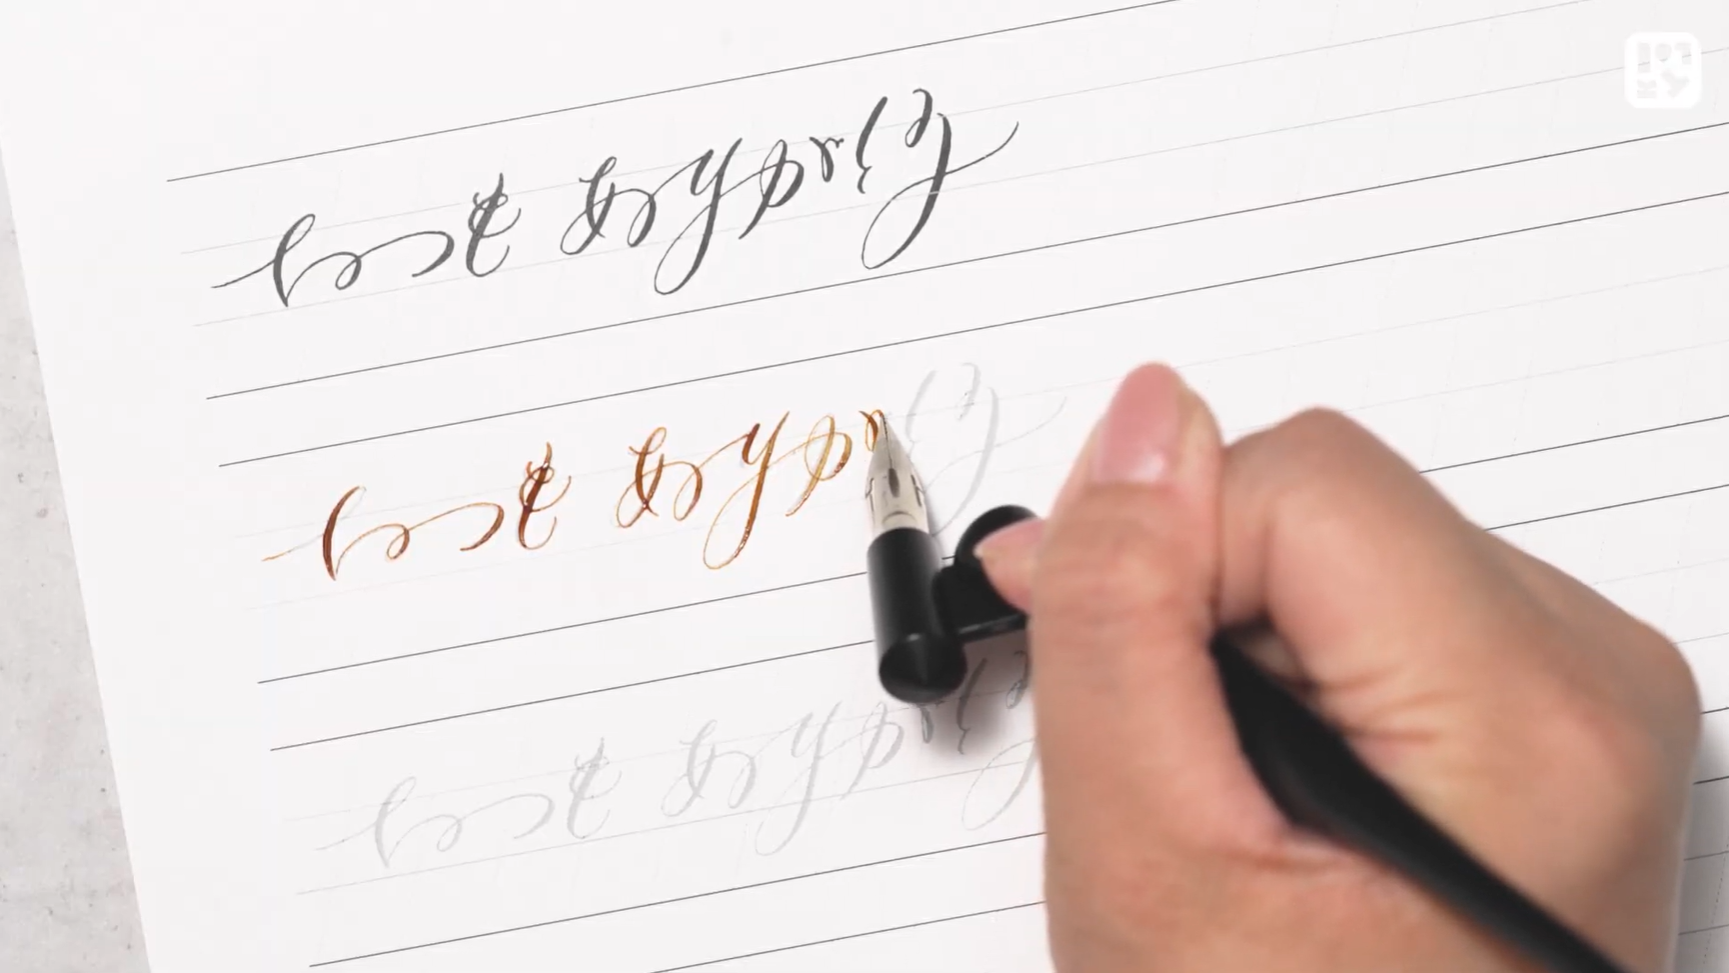 いつもありがとう
いつもありが
いつもありがとう